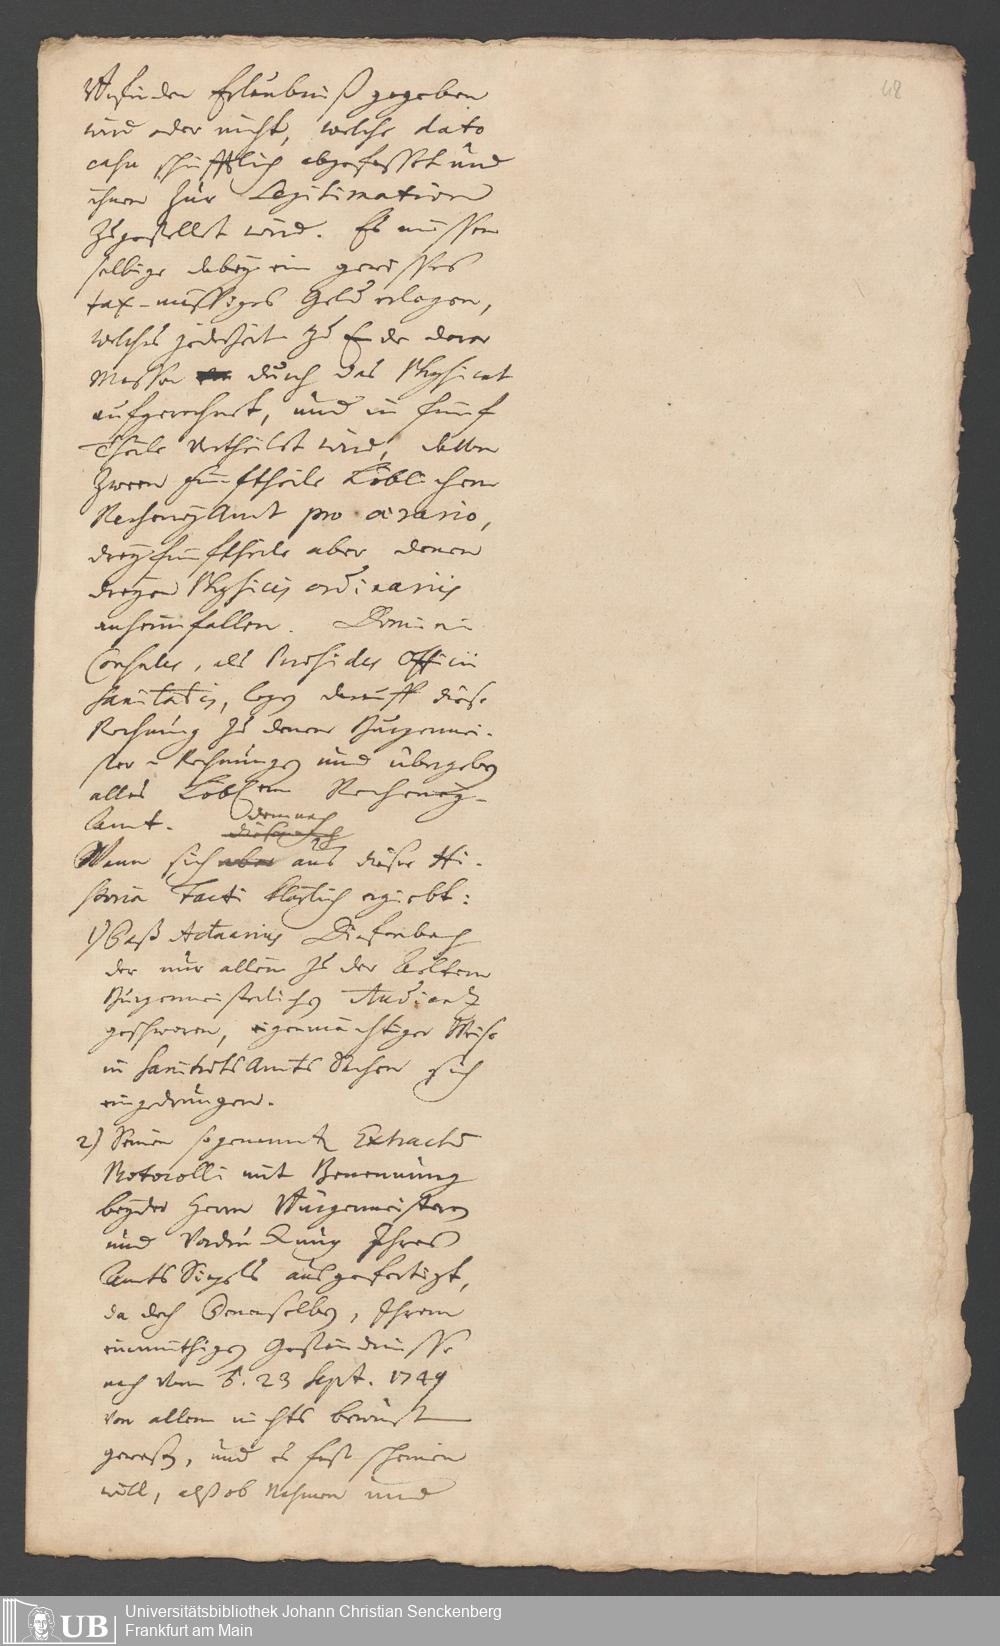 48
Befinden Erlaubniß gegeben
wird oder nicht, welche dato
casu schrifftlich abgefasset und
ihnen zur Legitimation
zugestellet wird. Es müssen
selbige dabey ein gewisses
tax-mässiges Geld erlegen,
welches jederzeit zu Ende derer
Messen durch das Physicat
aufgerechnet, und in fünf
Theile vertheilet wird, davon
zween fünftheile Löblichem
RecheneyAmt pro aerario,
drey fünftheile aber denen
dreyen Physicis ordinariis
anheimfallen. Domini
Consules, als Praesides Officii
Sanitatis, legen darauff diese
Rechnung zu denen Burgermei-
ster-Rechnungen und übergeben
alles Löblem Recheney-
Amt.
demnach
Wann sich aber aus dieser Hi-
storia Facti klärlich ergiebt:
1) Daß Actuarius Diefenbach
der nur allein zu der Aeltern
Burgermeisterlichen Audienz
geschworen, eigenmächtiger Weise
in SanitætsAmts Sachen sich
eingedrungen.
2) Seinen sogenannten Extractum
Protocolli mit Benennung
beyder Herrn Burgermeistern
und Vordrückung Ihres
AmtsSiegels ausgefertigt,
da doch Denenselben, Ihrem
einmüthigen Geständnisse
nach vom 23 Sept. 1749
von allem nichts bewust
gewesen, und es fast scheinen
will, alß ob Nahmen und
UB
Universitätsbibliothek Johann Christian Senckenberg
Frankfurt am Main